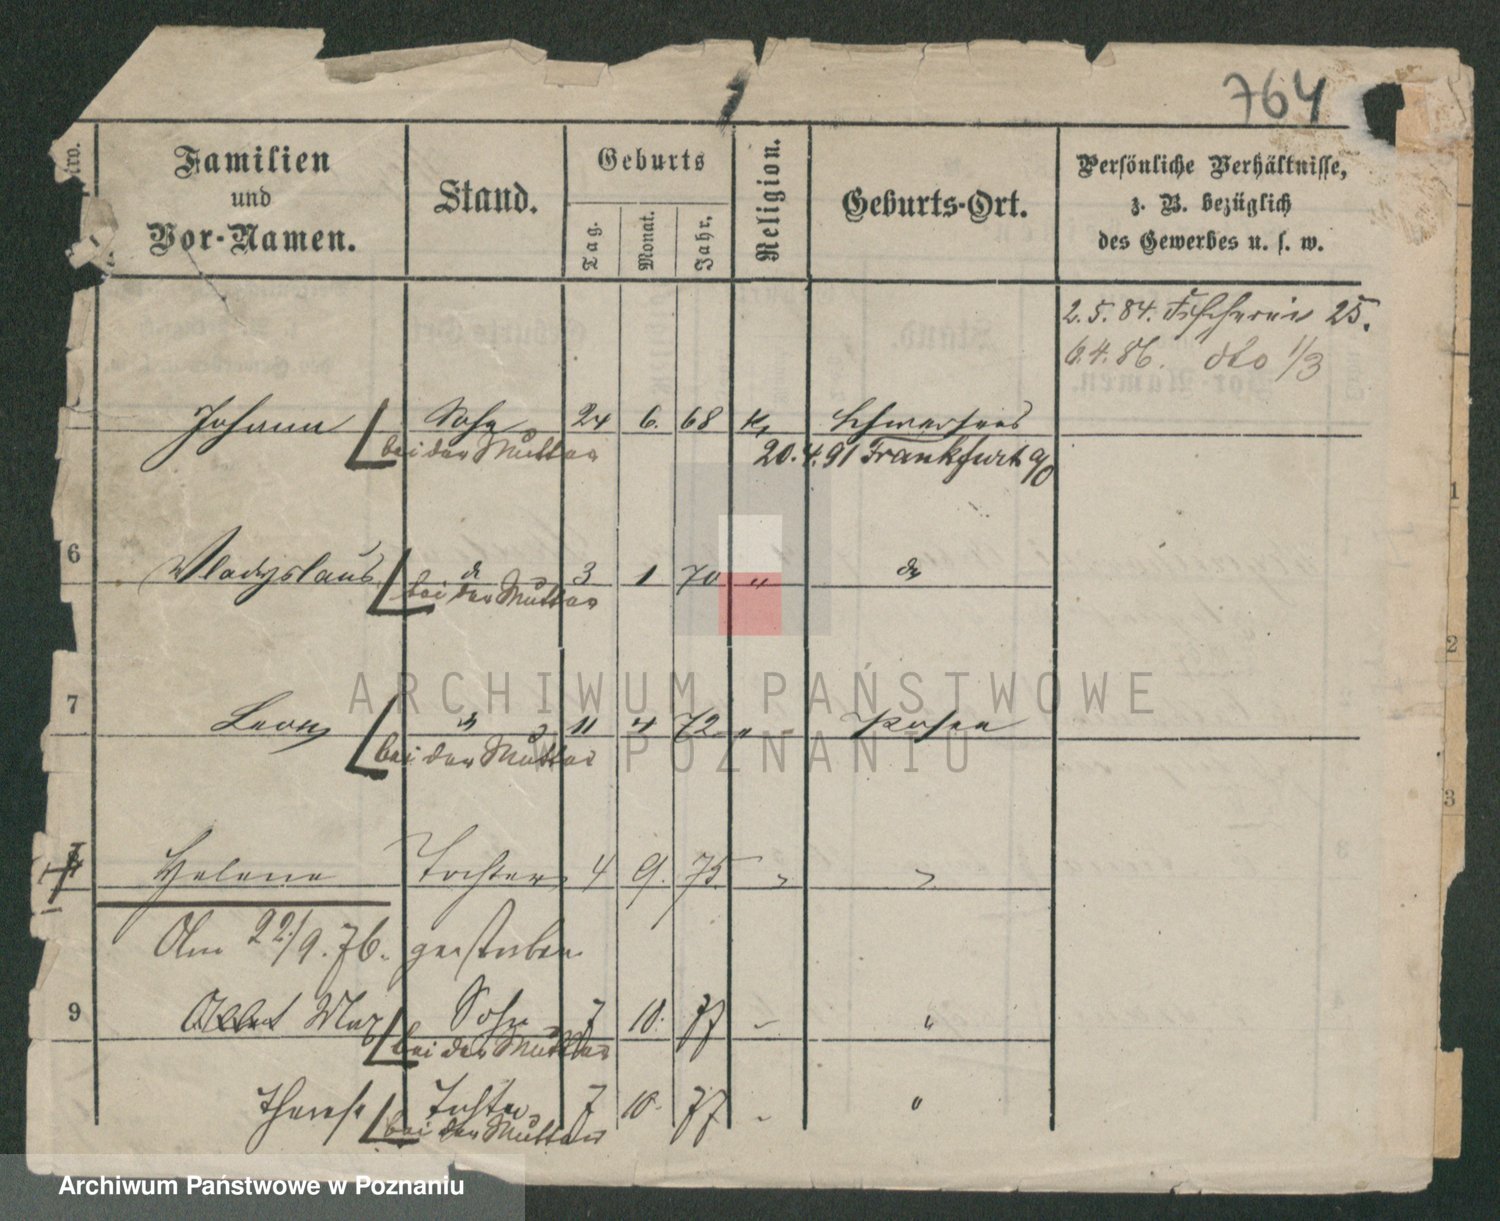 764
Nro.
Familien
und
Vor-Namen.
Stand.
Geburts
Tag.
Monat.
Jahr.
Religion.
Geburts-Ort.
Persönliche Verhältnisse,
z. B. bezüglich
des Gewerbes u. s. w.
2.5.84. Fischerei 25.
6.4.86. dto 1/3
Johann Sohn 24 6. 68 K
bei der Mutter 20.4.91 Frankfurt a/O
6 Wladyslaus do 3 1 70 " do
bei der Mutter
7 Leon do 11 4 72 " Posen
bei der Mutter
Helene Tochter 4 9. 75 " "
Am 22/9.76. gestorben
9 Max Sohn 7 10. 77 "
bei der Mutter
Therese Tochter 7 10. 77 "
bei der Mutter
1
2
3
ARCHIWUM PAŃSTWOWE
W POZNANIU
Archiwum Państwowe w Poznaniu